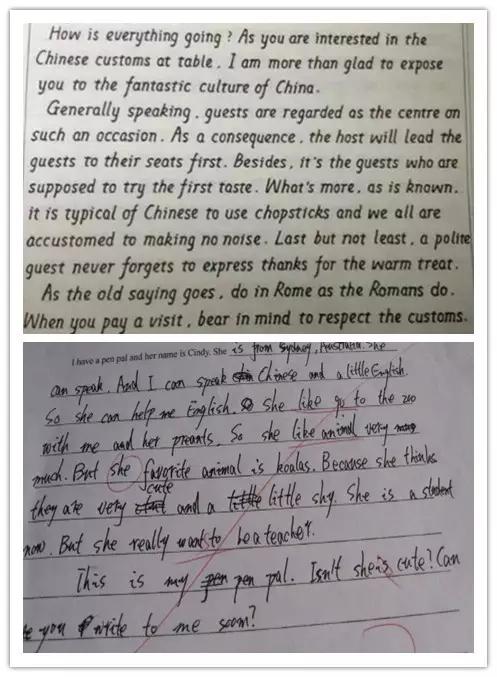 How is everything going? As you are interested in the
Chinese customs at table, I am more than glad to expose
you to the fantastic culture of China.
Generally speaking, guests are regarded as the centre on
such an occasion. As a consequence, the host will lead the
guests to their seats first. Besides, it's the guests who are
supposed to try the first taste. What's more, as is known,
it is typical of Chinese to use chopsticks and we all are
accustomed to making no noise. Last but not least, a polite
guest never forgets to express thanks for the warm treat.
As the old saying goes, do in Rome as the Romans do.
When you pay a visit, bear in mind to respect the customs.
I have a pen pal and her name is Cindy. She is from Sydney, Australia. She
can speak. And I can speak Chinese and a little English.
So she can help me English. She like go to the zoo
with me and her preants. So she like animal very
much. But she favorite animal is koalas. Because she thinks
they are very cute and a little shy. She is a student
now. But she really want to be a teacher.
This is my pen pal. Isn't she is cute? Can
you write to me soom?